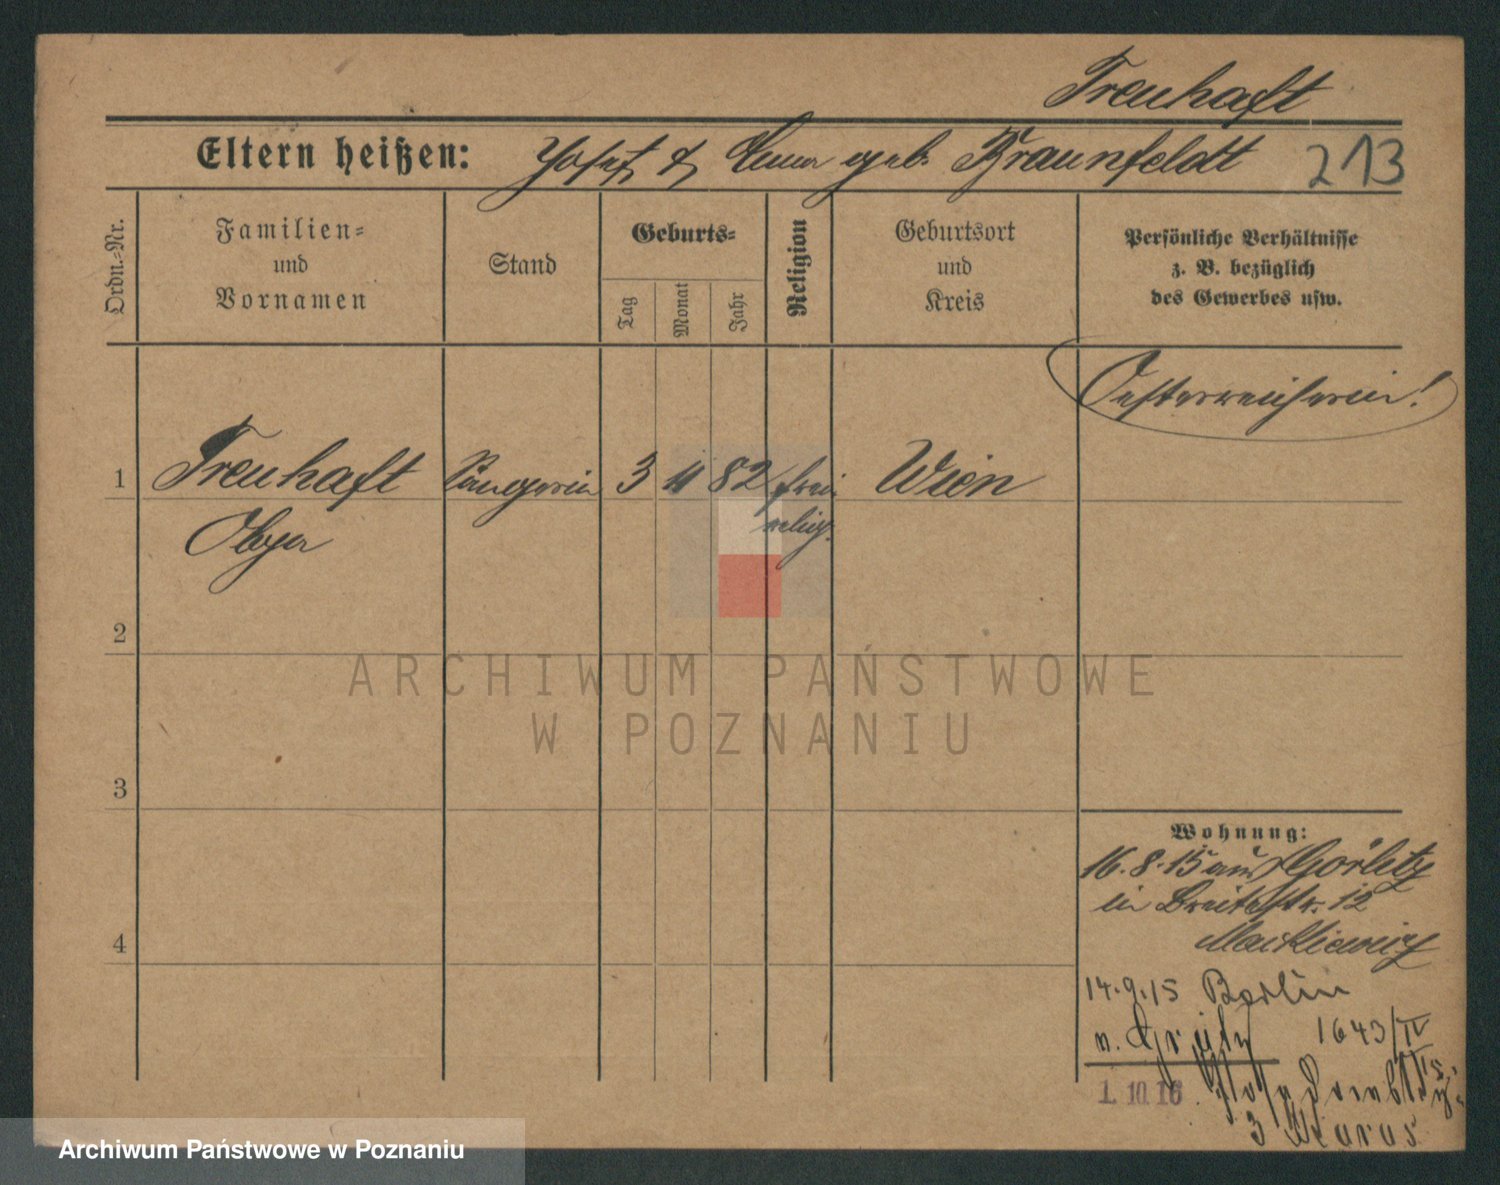 Treuhaft
Eltern heißen: Josef & geb. Braunfeldt 213
Ordn.-Nr.
Familien-
und
Vornamen
Stand
Geburts-
Tag
Monat
Jahr
Religion
Geburtsort
und
Kreis
Persönliche Verhältnisse
z. B. bezüglich
des Gewerbes usw.
Oesterreicherin!
1 Treuhaft Sängerin 3 11 82 frei Wien
Olga relig.
2
3
4
Wohnung:
16.8.15 aus Görlitz
in Breitestr. 12
Markiewicz
14.9.15 Berlin
n. Graetz 1643/IV
15
1. 10. 16
3
ARCHIWUM PAŃSTWOWE
W POZNANIU
Archiwum Państwowe w Poznaniu